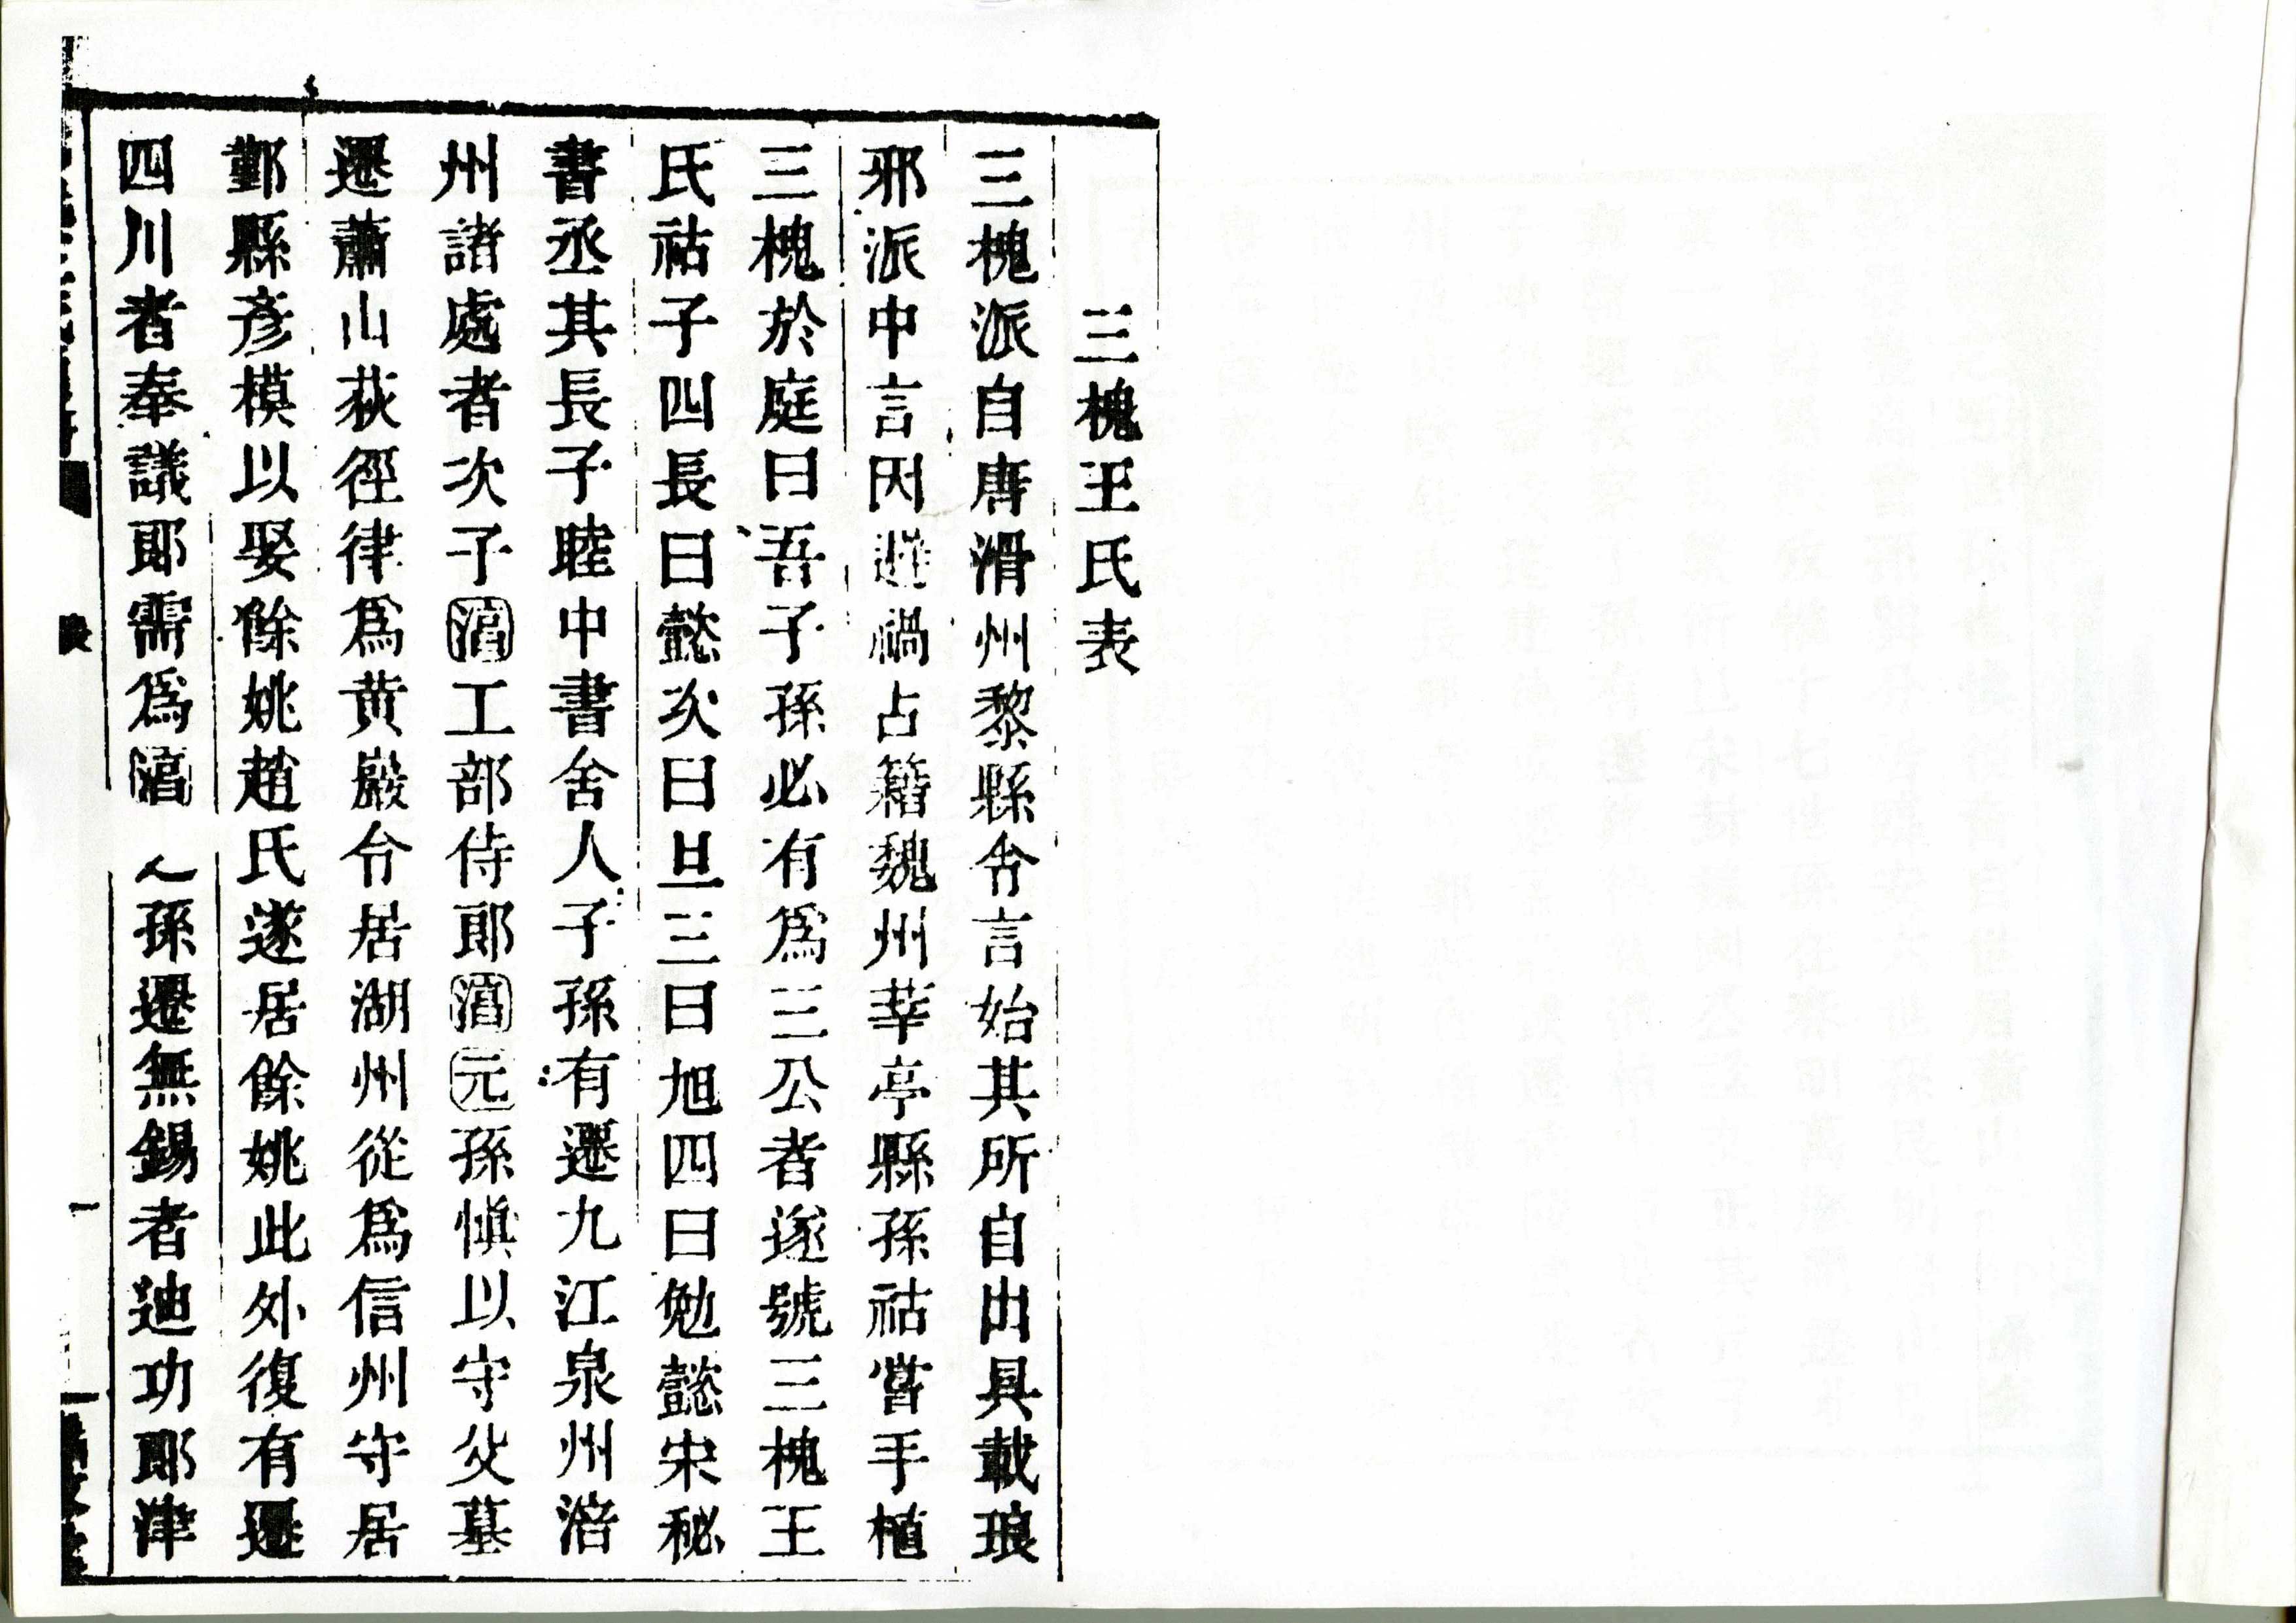 三槐王氏表
三槐派自唐滑州黎縣令言始其所自出具載琅
邪派中言因避禍占籍魏州莘亭縣孫祜嘗手植
三槐於庭曰吾子孫必有爲三公者遂號三槐王
氏祜子四長曰懿次曰旦三曰旭四曰勉懿宋秘
書丞其長子睦中書舍人子孫有遷九江泉州涪
州諸處者次子工部侍郎元孫愼以守父墓
遷蕭山荻徑律爲黃巖令居湖州從爲信州守居
鄞縣彥模以娶餘姚趙氏遂居餘姚此外復有遷
四川者奉議郎需爲人孫遷無錫者迪功郎津
表
一